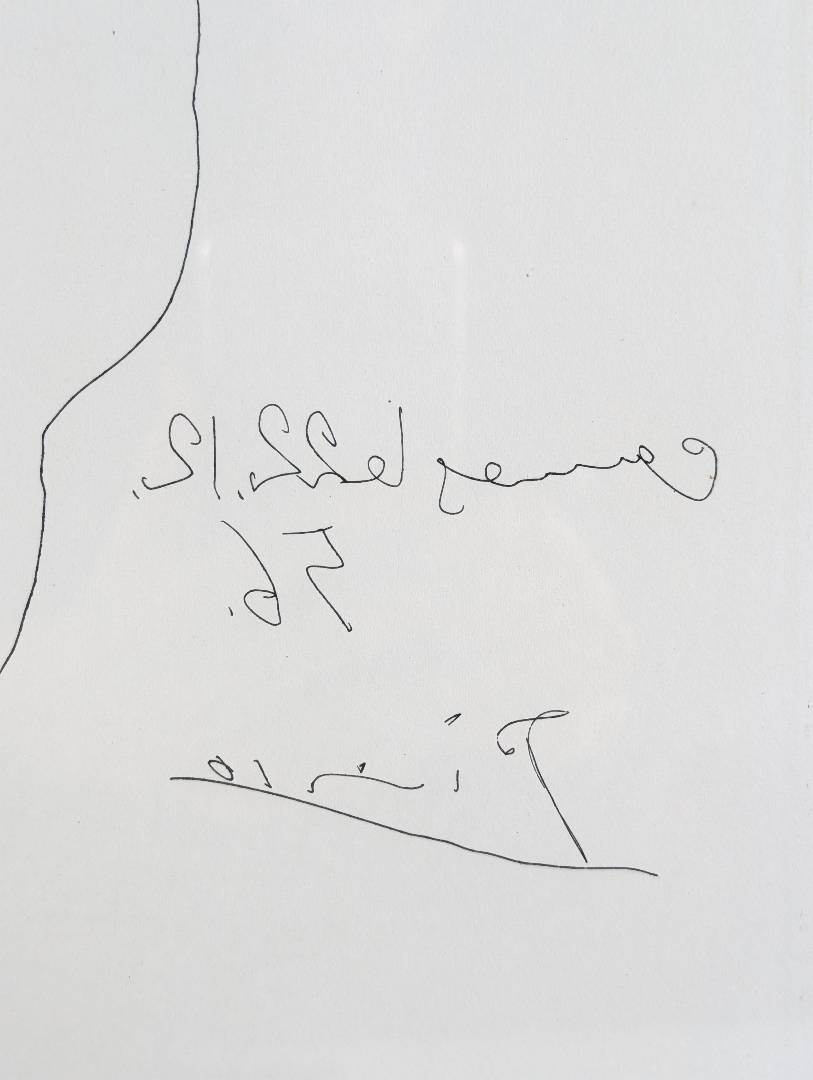 Cannes le 22.12.
56.
Picasso